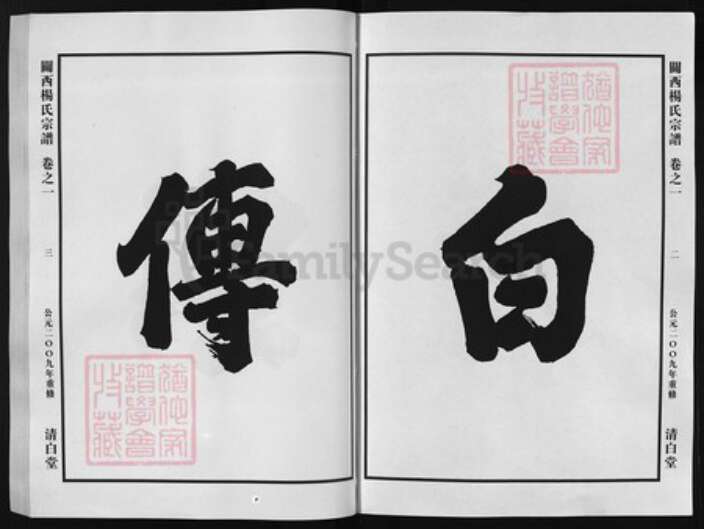 關西楊氏宗譜 卷之一 二 公元二〇〇九年重修 清白堂
白
猶他家譜學會特藏
FamilySearch
傳
猶他家譜學會特藏
關西楊氏宗譜 卷之一 三 公元二〇〇九年重修 清白堂